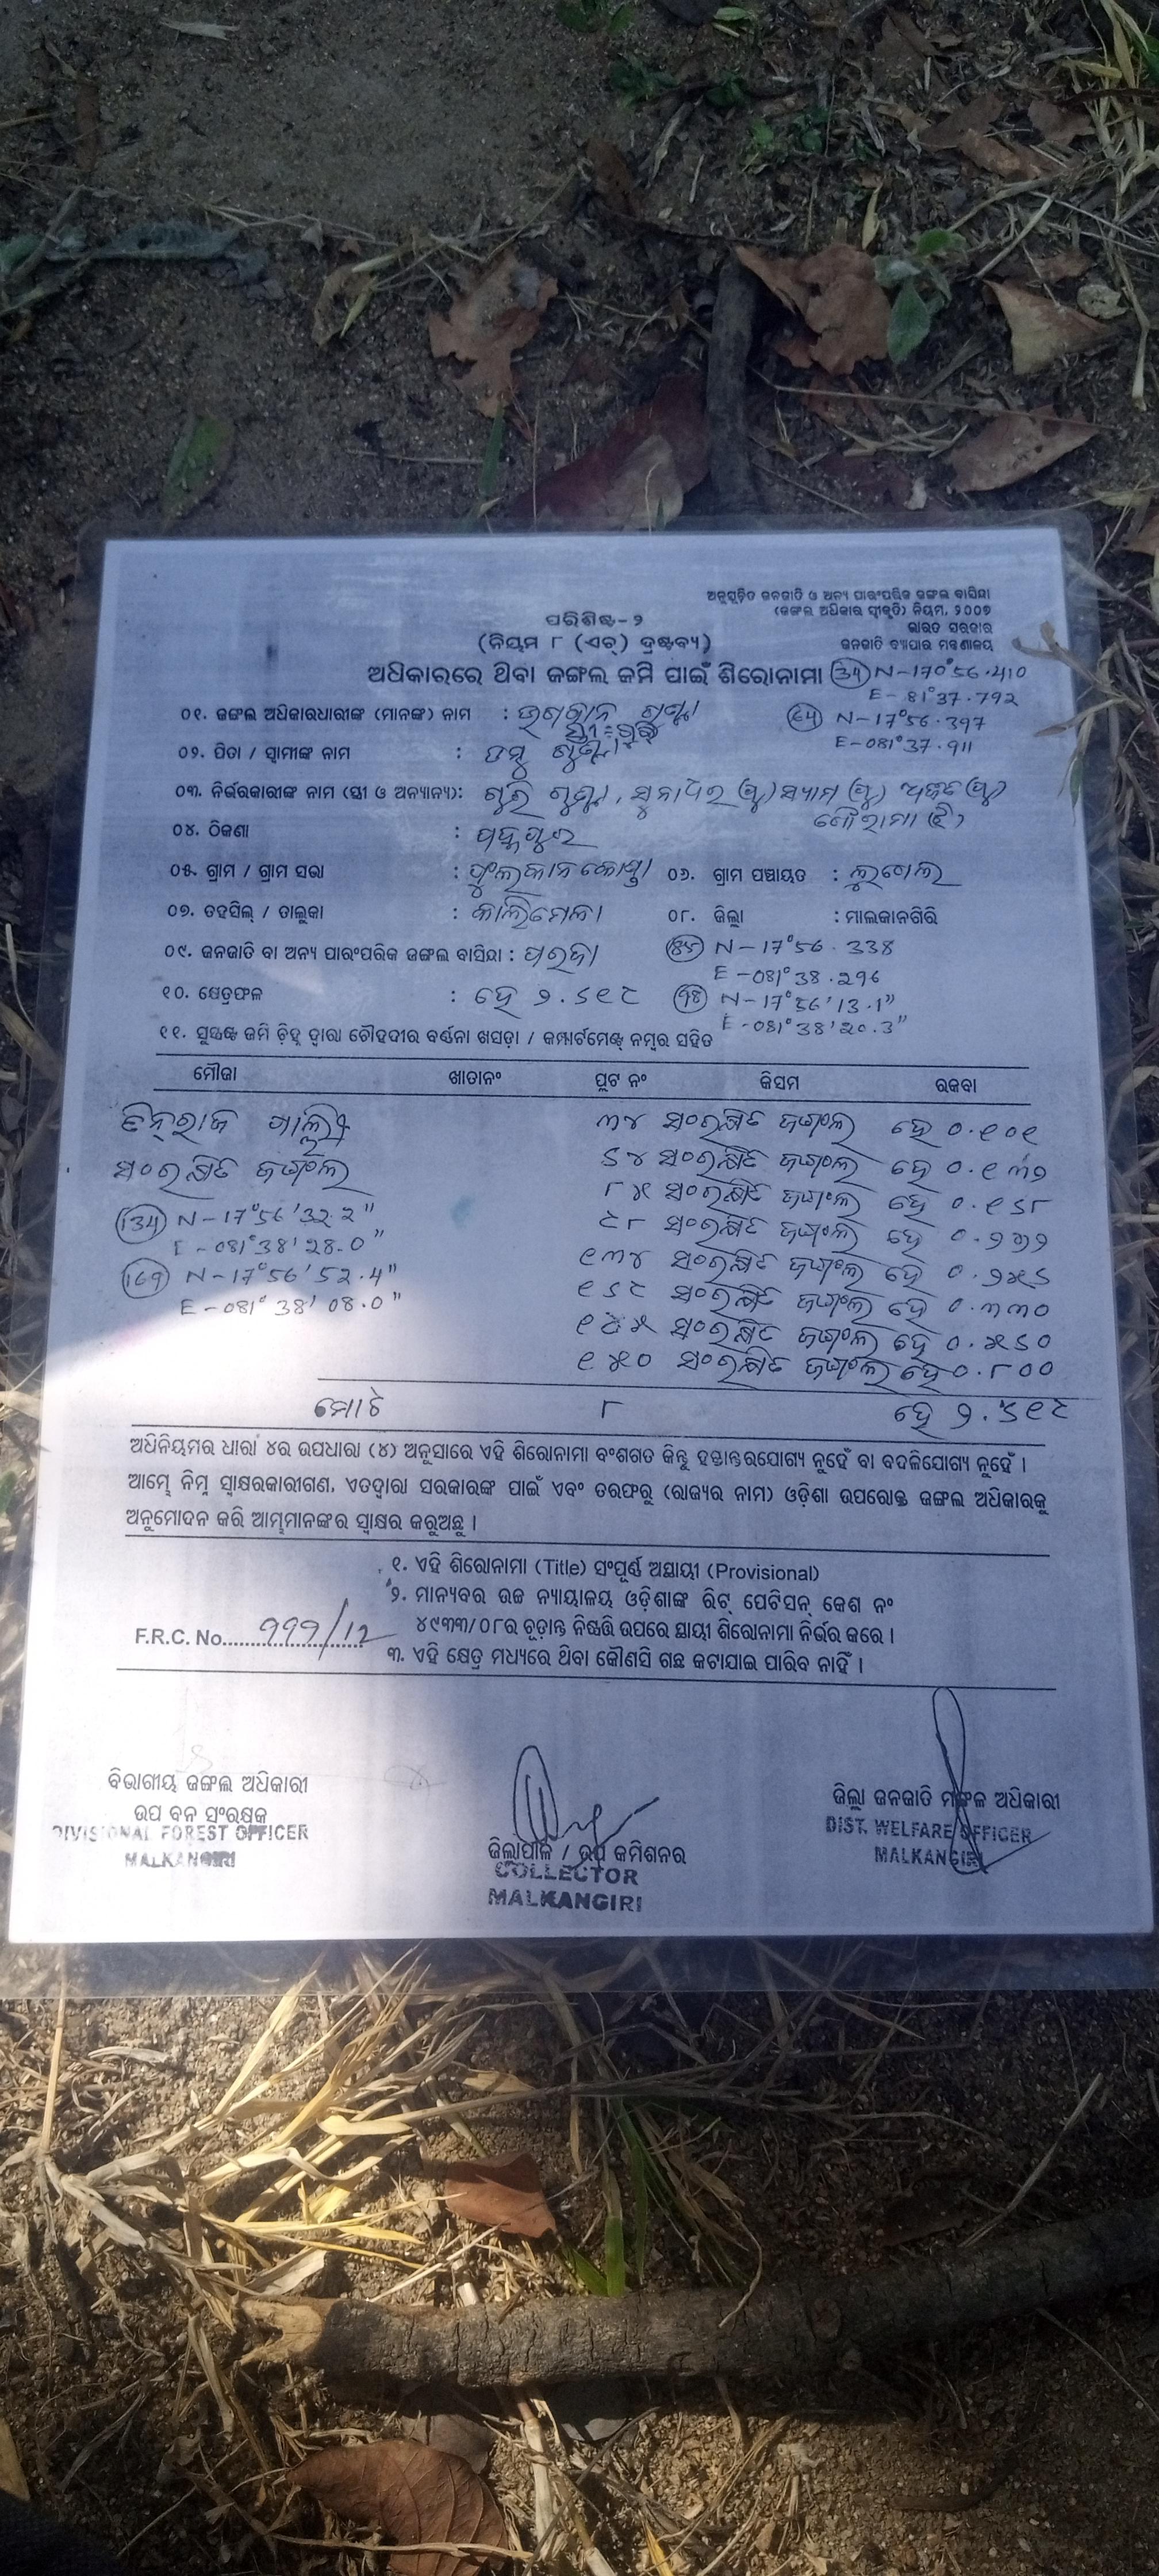 ଅନୁସୂଚିତ ଜନଜାତି ଓ ଅନ୍ୟ ପାରଂପରିକ ଜଙ୍ଗଲ ବାସିନ୍ଦା
(ଜଙ୍ଗଲ ଅଧିକାର ସ୍ୱୀକୃତି) ନିୟମ, ୨୦୦୭
ଭାରତ ସରକାର
ଜନଜାତି ବ୍ୟାପାର ମନ୍ତ୍ରଣାଳୟ
ପରିଶିଷ୍ଟ-୨
(ନିୟମ ୮ (ଏଚ୍) ଦ୍ରଷ୍ଟବ୍ୟ)
ଅଧିକାରରେ ଥିବା ଜଙ୍ଗଲ ଜମି ପାଇଁ ଶିରୋନାମା (34) N-170°56.410
E-81°37.792
୦୧. ଜଙ୍ଗଲ ଅଧିକାରଧାରୀଙ୍କ (ମାନଙ୍କ) ନାମ : (64) N-17°56.397
E-081°37.911
୦୨. ପିତା / ସ୍ୱାମୀଙ୍କ ନାମ :
୦୩. ନିର୍ଭରକାରୀଙ୍କ ନାମ (ସ୍ତ୍ରୀ ଓ ଅନ୍ୟାନ୍ୟ):
୦୪. ଠିକଣା : ପଦ୍ମପୁର
୦୫. ଗ୍ରାମ / ଗ୍ରାମ ସଭା : ୦୬. ଗ୍ରାମ ପଞ୍ଚାୟତ :
୦୭. ତହସିଲ୍ / ତାଲୁକା : କାଲିମେଳା ୦୮. ଜିଲ୍ଲା : ମାଲକାନଗିରି
୦୯. ଜନଜାତି ବା ଅନ୍ୟ ପାରଂପରିକ ଜଙ୍ଗଲ ବାସିନ୍ଦା : ପରଜା N-17°56.338
E-081°38.296
୧୦. କ୍ଷେତ୍ରଫଳ : ହେ ୨.୬୧୯ (98) N-17°56'13.1"
E-081°38'20.3"
୧୧. ସୁସ୍ପଷ୍ଟ ଜମି ଚିହ୍ନ ଦ୍ୱାରା ଚୌହଦୀର ବର୍ଣ୍ଣନା ଖସଡ଼ା / କମ୍ପାର୍ଟମେଣ୍ଟ୍ ନମ୍ବର ସହିତ
ମୌଜା ଖାତାନଂ ପ୍ଲଟ ନଂ କିସମ ରକବା
୩୪ ସଂରକ୍ଷିତ ଜଙ୍ଗଲ ହେ ୦.୧୦୧
ସଂରକ୍ଷିତ ଜଙ୍ଗଲ ୬୪ ସଂରକ୍ଷିତ ଜଙ୍ଗଲ ହେ ୦.୧୩୨
(134) N-17°56'32.2" ୮୫ ସଂରକ୍ଷିତ ଜଙ୍ଗଲ ହେ ୦.୧୬୮
E-081°38'28.0" ୯୮ ସଂରକ୍ଷିତ ଜଙ୍ଗଲ ହେ
(169) N-17°56'52.4" ୧୩୪ ସଂରକ୍ଷିତ ଜଙ୍ଗଲ ହେ ୦.୨୫୬
E-081°38'08.0" ୧୬୯ ସଂରକ୍ଷିତ ଜଙ୍ଗଲ ହେ ୦.୩୩୦
ସଂରକ୍ଷିତ ଜଙ୍ଗଲ ହେ ୦.୫୬୦
୧୫୦ ସଂରକ୍ଷିତ ଜଙ୍ଗଲ ହେ ୦.୮୦୦
ମୋଟ ୮ ହେ ୨.୬୧୯
ଅଧିନିୟମର ଧାରା ୪ର ଉପଧାରା (୪) ଅନୁସାରେ ଏହି ଶିରୋନାମା ବଂଶଗତ କିନ୍ତୁ ହସ୍ତାନ୍ତରଯୋଗ୍ୟ ନୁହେଁ ବା ବଦଳିଯୋଗ୍ୟ ନୁହେଁ ।
ଆମ୍ଭେ ନିମ୍ନ ସ୍ୱାକ୍ଷରକାରୀଗଣ, ଏତଦ୍ୱାରା ସରକାରଙ୍କ ପାଇଁ ଏବଂ ତରଫରୁ (ରାଜ୍ୟର ନାମ) ଓଡ଼ିଶା ଉପରୋକ୍ତ ଜଙ୍ଗଲ ଅଧିକାରକୁ
ଅନୁମୋଦନ କରି ଆମ୍ଭମାନଙ୍କର ସ୍ୱାକ୍ଷର କରୁଅଛୁ ।
୧. ଏହି ଶିରୋନାମା (Title) ସଂପୂର୍ଣ୍ଣ ଅସ୍ଥାୟୀ (Provisional)
୨. ମାନ୍ୟବର ଉଚ୍ଚ ନ୍ୟାୟାଳୟ ଓଡ଼ିଶାଙ୍କ ରିଟ୍ ପେଟିସନ୍ କେଶ ନଂ
୪୯୩୩/୦୮ର ଚୂଡ଼ାନ୍ତ ନିଷ୍ପତ୍ତି ଉପରେ ସ୍ଥାୟୀ ଶିରୋନାମା ନିର୍ଭର କରେ ।
F.R.C. No. 999/12
୩. ଏହି କ୍ଷେତ୍ର ମଧ୍ୟରେ ଥିବା କୌଣସି ଗଛ କଟାଯାଇ ପାରିବ ନାହିଁ ।
ବିଭାଗୀୟ ଜଙ୍ଗଲ ଅଧିକାରୀ
ଉପ ବନ ସଂରକ୍ଷକ
DIVISIONAL FOREST OFFICER
MALKANGIRI
ଜିଲ୍ଲାପାଳ / ଉପ କମିଶନର
COLLECTOR
MALKANGIRI
ଜିଲ୍ଲା ଜନଜାତି ମଙ୍ଗଳ ଅଧିକାରୀ
DIST. WELFARE OFFICER
MALKANGIRI